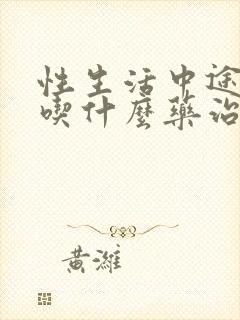 性生活中途
喫什麼藥治
黃濰